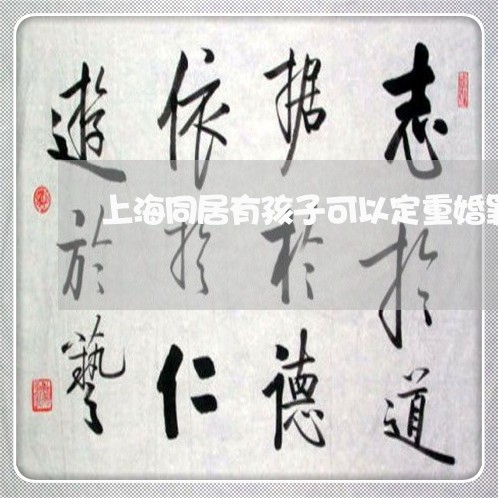 志於道
据於德
依於仁
遊於藝
上海同居有孩子可以定重婚